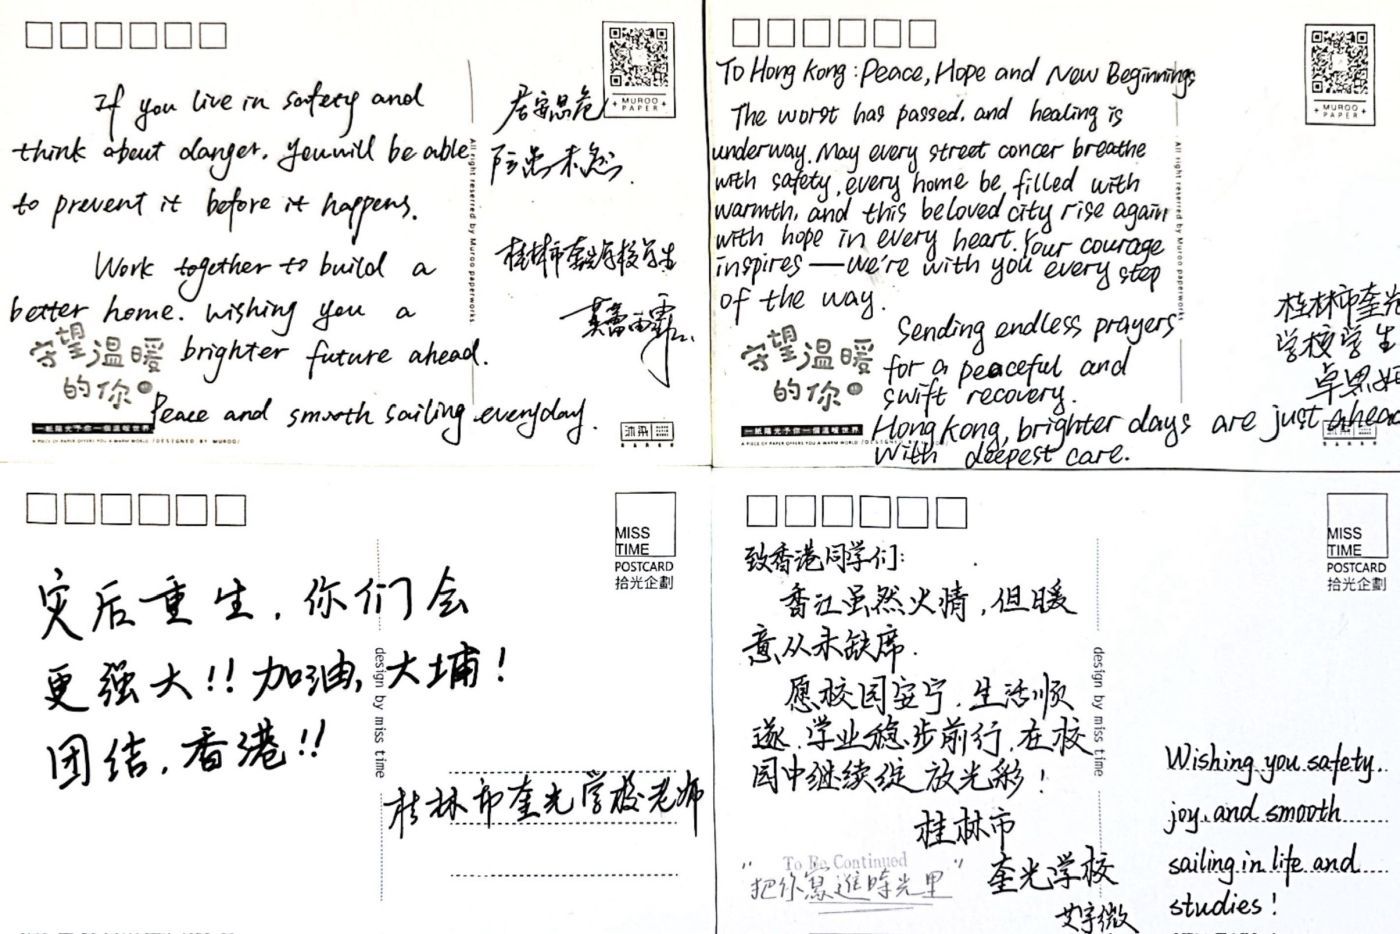 If you live in safety and
think about danger. you will be able
to prevent it before it happens.
Work together to build a
better home. wishing you a
brighter future ahead.
Peace and smooth sailing everyday.
居安思危
防患未然.
桂林市奎光学校学生
MUROO
PAPER
All right reserred by Muroo paperworks
守望温暖
的你
一紙陽光予你一個溫暖世界
A PIECE OF PAPER OFFERS YOU A WARM WORLD /DESIGNED BY MUROO/
沐柒
To Hong Kong: Peace, Hope and New Beginnings
The worst has passed. and healing is
underway. May every street concer breathe
with safety, every home be filled with
warmth, and this beloved city rise again
with hope in every heart. Your courage
inspires — we're with you every step
of the way.
Sending endless prayers
for a peaceful and
swift recovery.
Hong Kong, brighter days are just ahead
with deepest care.
桂林市奎光
学校学生
卓思
MUROO
PAPER
All right reserred by Muroo paperworks
守望温暖
的你
一紙陽光予你一個溫暖世界
A PIECE OF PAPER OFFERS YOU A WARM WORLD /DESIGNED BY
灾后重生,你们会
更强大!!加油,大埔!
团结,香港!!
桂林市奎光学校老师
MISS
TIME
POSTCARD
拾光企劃
design by miss time
致香港同学们:
香江虽然火情,但暖
意从未缺席.
愿校园安宁,生活顺
遂,学业稳步前行,在校
园中继续绽放光彩!
桂林市
奎光学校
艾宇微
To Be Continued
"把你寫進時光里"
MISS
TIME
POSTCARD
拾光企劃
design by miss time
Wishing you safety.
joy, and smooth
sailing in life and
studies!